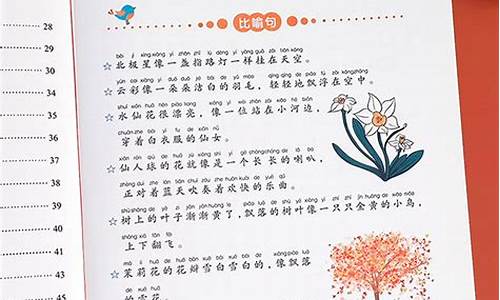 比喻句
28
30
34
35
36
37
38
39
40
41
45
běi jí xīng xiàng yì zhǎn zhǐ lù dēng yí yàng guà zài tiān kōng
☆北极星像一盏指路灯一样挂在天空。
yún cai xiàng yì duǒ duǒ jié bái de yǔ máo qīng qīng de piāo fú zài kōng zhōng
☆云彩像一朵朵洁白的羽毛，轻轻地飘浮在空中。
shuǐ xiān huā hěn piào liang xiàng yí wèi zhàn zài xiǎo hé biān
☆水仙花很漂亮，像一位站在小河边，
chuān zhe bái yī fu de xiān nǚ
穿着白衣服的仙女。
xiān rén qiú de huā jiù xiàng shì yí gè cháng cháng de lǎ ba
☆仙人球的花就像是一个长长的喇叭，
zhèng duì zhe lán tiān chuī zòu zhe huān kuài de yuè qǔ
正对着蓝天吹奏着欢快的乐曲。
shù shàng de yè zi jiàn jiàn huáng le piāo luò de shù yè xiàng yì zhī zhī jīn huáng de xiǎo niǎo
☆树上的叶子渐渐黄了，飘落的树叶像一只只金黄的小鸟，
shàng xià fān fēi
上下翻飞。
mò lì huā de huā bàn xuě bái xuě bái de xiàng piāo luò
☆茉莉花的花瓣雪白雪白的，像飘落
的雪花。